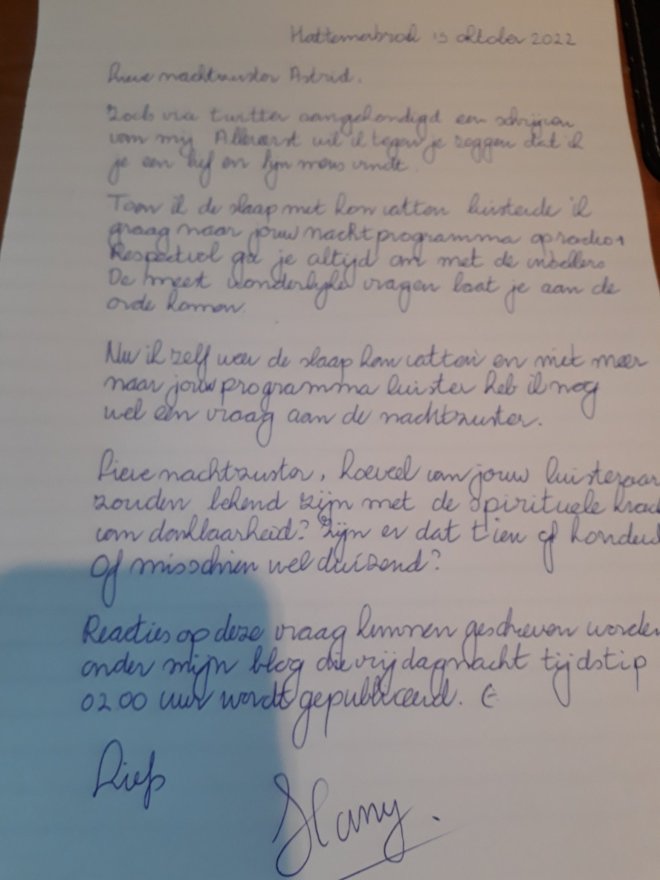 Hattemerbroek 19 oktober 2022
Lieve nachtzuster Astrid.
Zoals via twitter aangekondigd een schrijven
van mij Allereerst wil ik tegen je zeggen dat ik
je een lief en fijn mens vindt.
Toen ik de slaap niet kon vatten luisterde ik
graag naar jouw nachtprogramma op radio 1
Respectvol ga je altijd om met de inbellers
De meest wonderlijke vragen laat je aan de
orde komen.
Nu ik zelf weer de slaap kan vatten en niet meer
naar jouw programma luister heb ik nog
wel een vraag aan de nachtzuster.
Lieve nachtzuster, hoeveel van jouw luisteraar
zouden bekend zijn met de spirituele krac
van dankbaarheid? Zijn er dat tien of honderd
Of misschien wel duizend?
Reacties op deze vraag kunnen geschreven worden
onder mijn blog die vrijdagnacht tijdstip
02.00 uur wordt gepubliceerd.
Liefs
Hany.